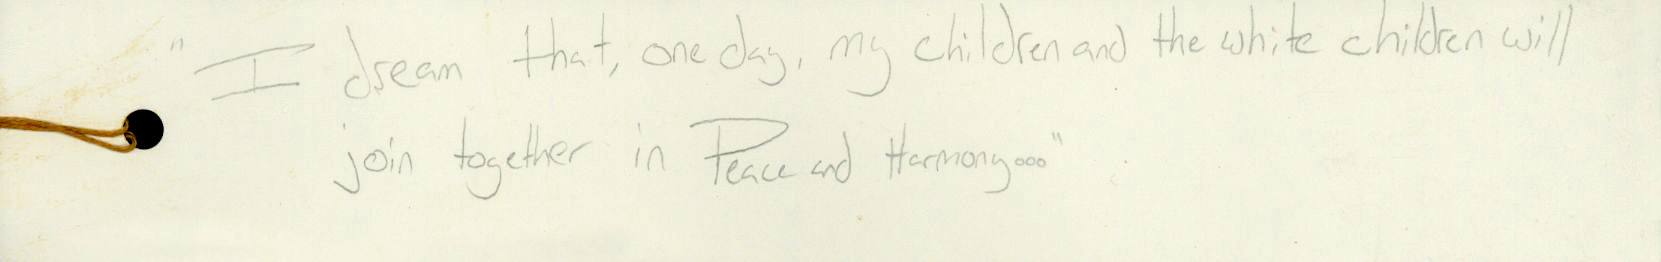 "I dream that, one day, my children and the white children will
join together in Peace and Harmony..."